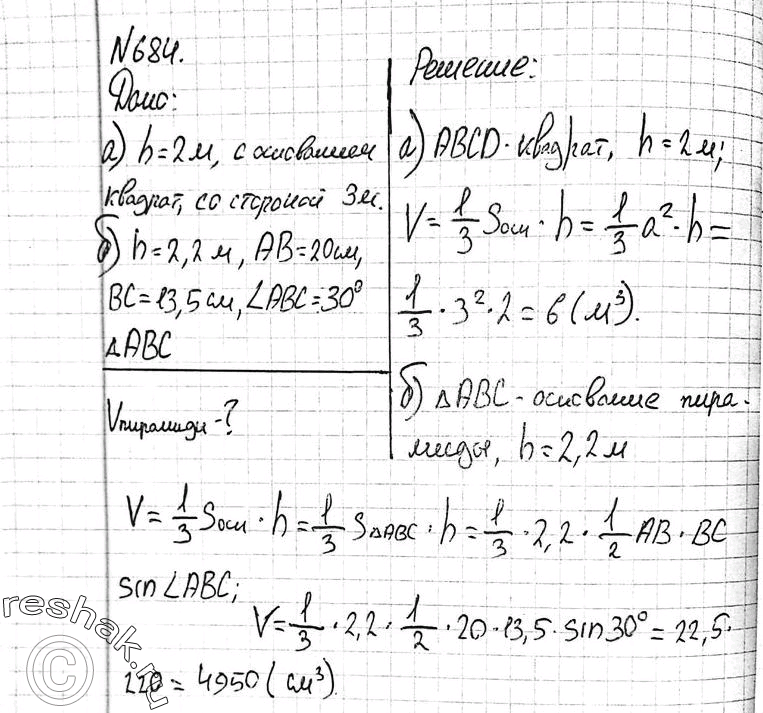 N684.
Дано:
а) h=2м, с основанием
квадрат, со стороной 3м.
б) h=2,2м, AB=20см,
BC=13,5см, ∠ABC=30°
△ABC
Vпирамиды-?
Решение:
а) ABCD-квадрат, h=2м;
V=1/3 Sосн · h=1/3 a²·h=
1/3 · 3²·2=6(м³).
б) △ABC-основание пира-
миды, h=2,2м
V=1/3 Sосн · h=1/3 S△ABC · h=1/3 · 2,2 · 1/2 AB · BC
sin∠ABC;
V=1/3 · 2,2 · 1/2 · 20 · 13,5 · sin30°=22,5·
220=4950(см³).
reshak.ru
©